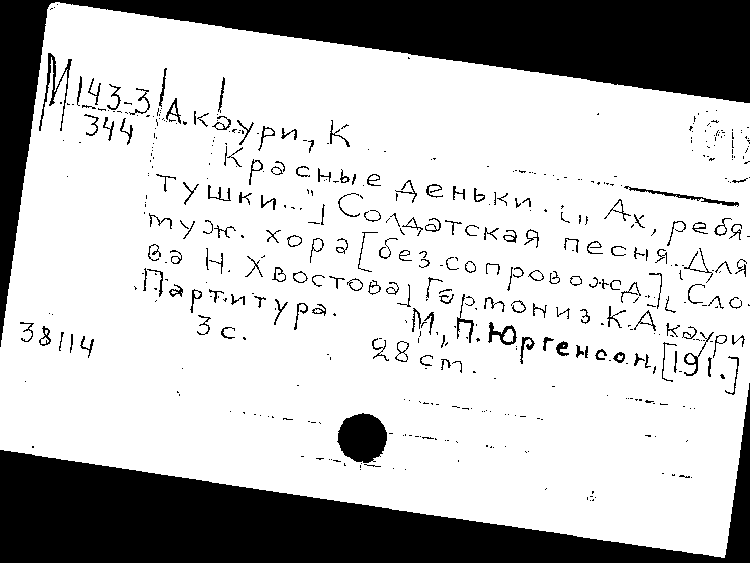 М 143-3
344
Акаури, К
Красные деньки. [„Ах, ребя-
тушки..."] Солдатская песня. Для
муж. хора [без сопровожд.] [Сло-
ва Н. Хвостова] Гармониз. К. Акаури
Партитура. М., П. Юргенсон, [191.]
3 с. 28 см.
38114